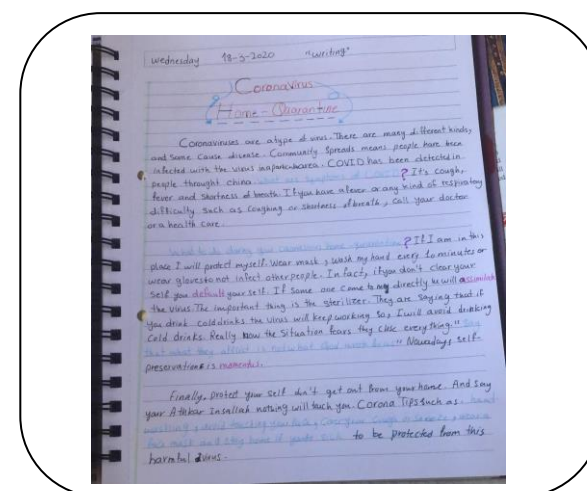 Wednesday 18-3-2020 "writing"
Coronavirus
Home-Quarantine
Coronaviruses are a type of virus. There are many different kinds,
and some cause disease. Community Spreads means people have been
infected with the virus in a area. COVID has been detected in
people throught china. what are symptoms of COVID? It's cough,
fever and shortness of breath. If you have a fever or any kind of respiratory
difficulty such as coughing or shortness of breath, call your doctor
or a health care.
What to do during your home quarantine? If I am in this
place I will protect myself. Wear mask, wash my hand every 20 minutes or
wear gloves to not infect other people. In fact, if you don't clear your
self you default your self. If some one come to my directly he will assimilate
the virus. The important thing is the sterilizer. They are saying that if
you drink cold drinks the virus will keep working. So, I will avoid drinking
Cold drinks. Really now the Situation fears they close every thing." Say
that what they afflict is not what God" Nowadays, self-
preservation is momentus.
Finally, protect your self don't get out from your home. And say
your Athkar Insallah nothing will touch you. Corona Tips such as. hand
washing, avoid touching your face, Cover your Cough or sneeze, wear a
face mask and stay home if you're sick to be protected from this
harmful virus.